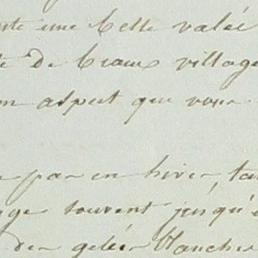 une belle valé
de beaux village
aspect que vous
par en hiver, tan
souvent jusqu'
des gelées blanches